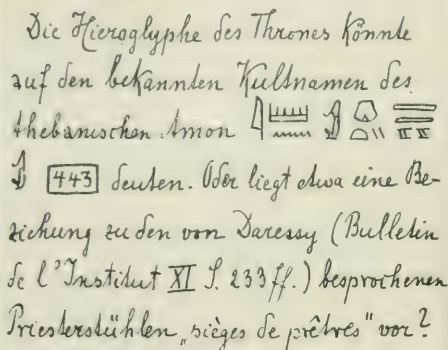 Die Hieroglyphe des Thrones könnte
auf den bekannten Kultnamen des
thebanischen Amon
443 deuten. Oder liegt etwa eine Be-
ziehung zu den von Daressy (Bulletin
de l'Institut XI S. 233 ff.) besprochenen
Priesterstühlen „sièges de prêtres" vor?